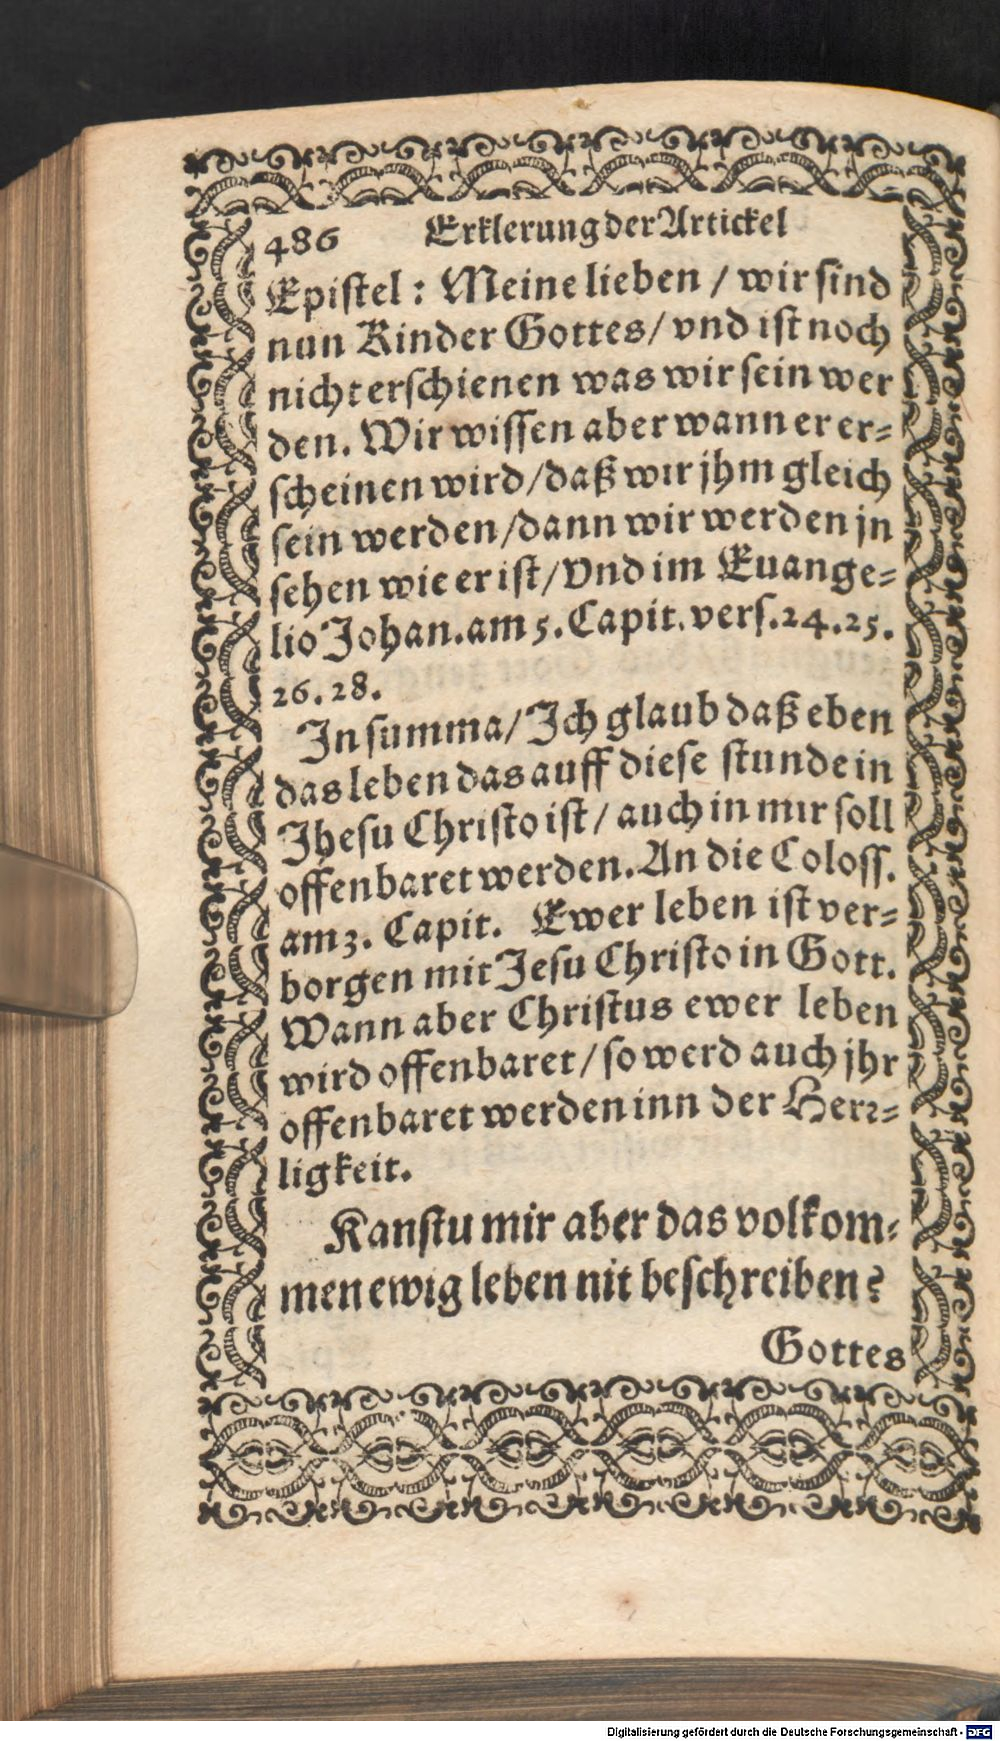 486 Erklerung der Artickel
Epistel: Meine lieben / wir sind
nun Kinder Gottes/ vnd ist noch
nicht erschienen was wir sein wer
den. Wir wissen aber wann er er-
scheinen wird/daß wir jhm gleich
sein werden/dann wir werden jn
sehen wie er ist/Vnd im Euange-
lio Johan.am 5. Capit. vers.24.25.
26.28.
In summa/ Ich glaub daß eben
das leben das auff diese stunde in
Jhesu Christo ist/ auch in mir soll
offenbaret werden. An die Coloss.
am 3. Capit. Ewer leben ist ver-
borgen mit Jesu Christo in Gott.
Wann aber Christus ewer leben
wird offenbaret/so werd auch jhr
offenbaret werden inn der Herr-
ligkeit.
Kanstu mir aber das volkom-
men ewig leben nit beschreiben?
Gottes
Digitalisierung gefördert durch die Deutsche Forschungsgemeinschaft - DFG